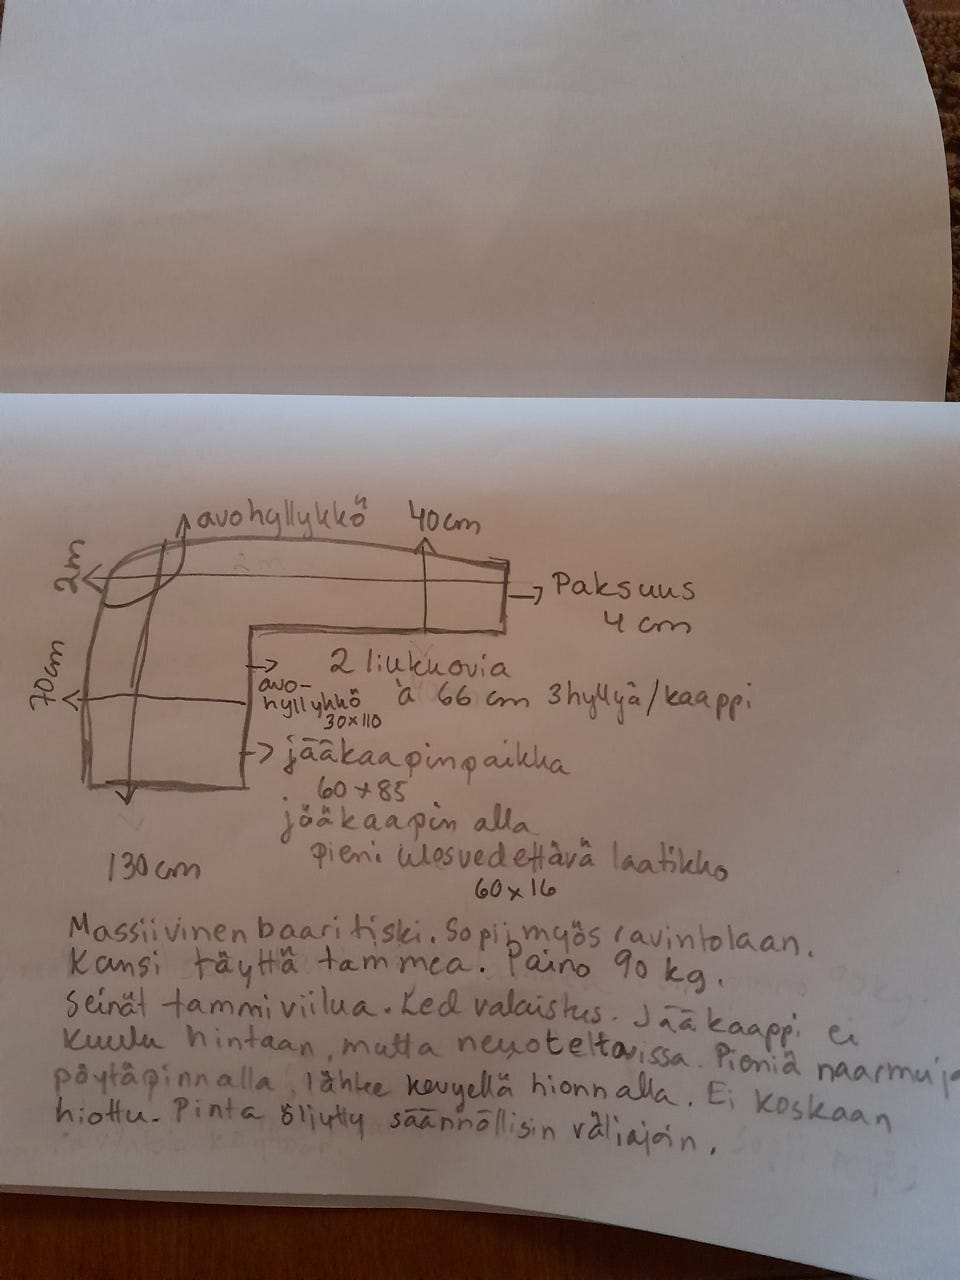 avohyllykkö
40cm
2m
2m
Paksuus
4 cm
70cm
2 liukuovia
à 66 cm 3hyllyä/kaappi
avo-
hyllykkö
30x110
jääkaapinpaikka
60x85
jääkaapin alla
pieni ulosvedettävä laatikko
60x16
130cm
Massiivinen baaritiski. Sopii myös ravintolaan.
Kansi täyttä tammea. Paino 90 kg.
Seinät tammiviilua. Led valaistus. Jääkaappi ei
kuulu hintaan, mutta neuoteltavissa. Pieniä naarmuja
pöytäpinnalla, lähtee kevyellä hionnalla. Ei koskaan
hiottu. Pinta öljytty säännöllisin väliajoin.